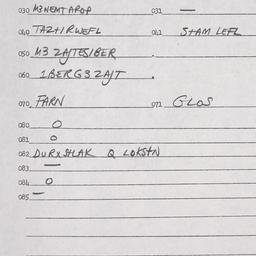 030 M3NEMT AROP 031 —
040 TAZ+IRWEFL 041 S+AM LEFL
050 M3 ZAJTESIBER
060 1BERG3 ZAJT .
070 FARN 071 GLOS
080 O
081 O
082 DURX SHLAK Q LOKSTN
083 —
084 O
085 —